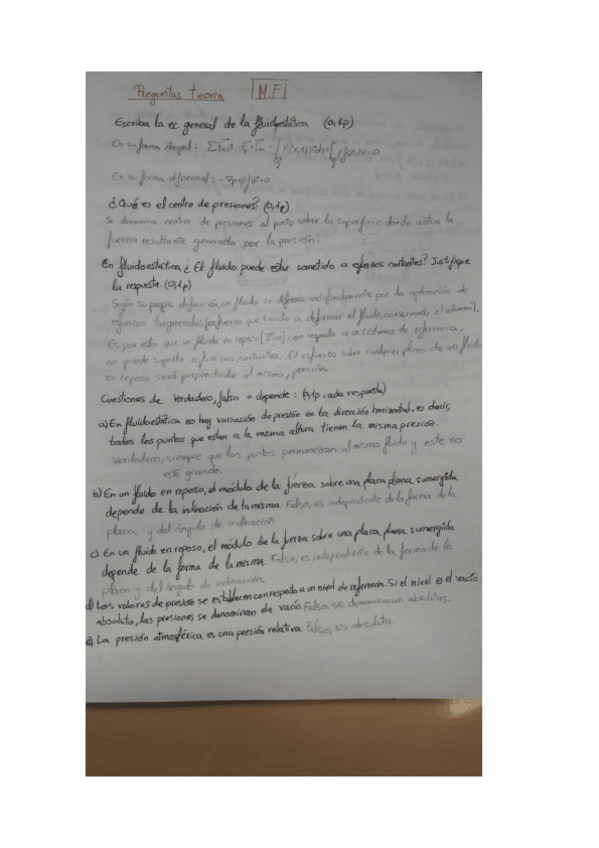 Preguntas teoría MF
Escriba la ec general de la fluidoestática (0,1p)
En su forma integral: ΣFext = Fp + Fm =
En su forma diferencial: -∇p+ρf=0
¿Qué es el centro de presiones? (0,1p)
Se denomina centro de presiones al punto sobre la superficie donde actúa la
fuerza resultante generada por la presión.
En fluidoestatica ¿El fluido puede estar sometido a esfuerzos cortantes? Justifique
la respuesta. (0,1p)
Según su propia definición, un fluido se deforma indefinidamente por la aplicación de
esfuerzos tangenciales [esfuerzo que tiende a deformar el fluido, conservando el volumen].
Es por esto que un fluido en reposo [v=0] con respecto a un sistema de referencia,
no puede soportar esfuerzos cortantes. El esfuerzo sobre cualquier plano de un fluido
en reposo será perpendicular al mismo, presión.
Cuestiones de verdadero, falso o depende: (0,1p cada respuesta)
a) En fluidoestática no hay variación de presión en la dirección horizontal, es decir,
todos los puntos que estan a la misma altura tienen la misma presión.
Verdadero, siempre que los puntos permanezcan al mismo fluido y este no
esté girando.
b) En un fluido en reposo, el módulo de la fuerza sobre una placa plana, sumergida
depende de la inclinación de la misma. Falso, es independiente de la forma de la
placa y del ángulo de inclinación
c) En un fluido en reposo, el módulo de la fuerza sobre una placa plana sumergida
depende de la forma de la misma. Falso, es independiente de la forma de la
placa y del ángulo de inclinación.
d) Los valores de presión se establecen con respecto a un nivel de referencia. Si el nivel es el vacío
absoluto, las presiones se denominan de vacío. Falso, se denominarian absolutas.
e) La presión atmosférica es una presión relativa. Falso, es absoluta